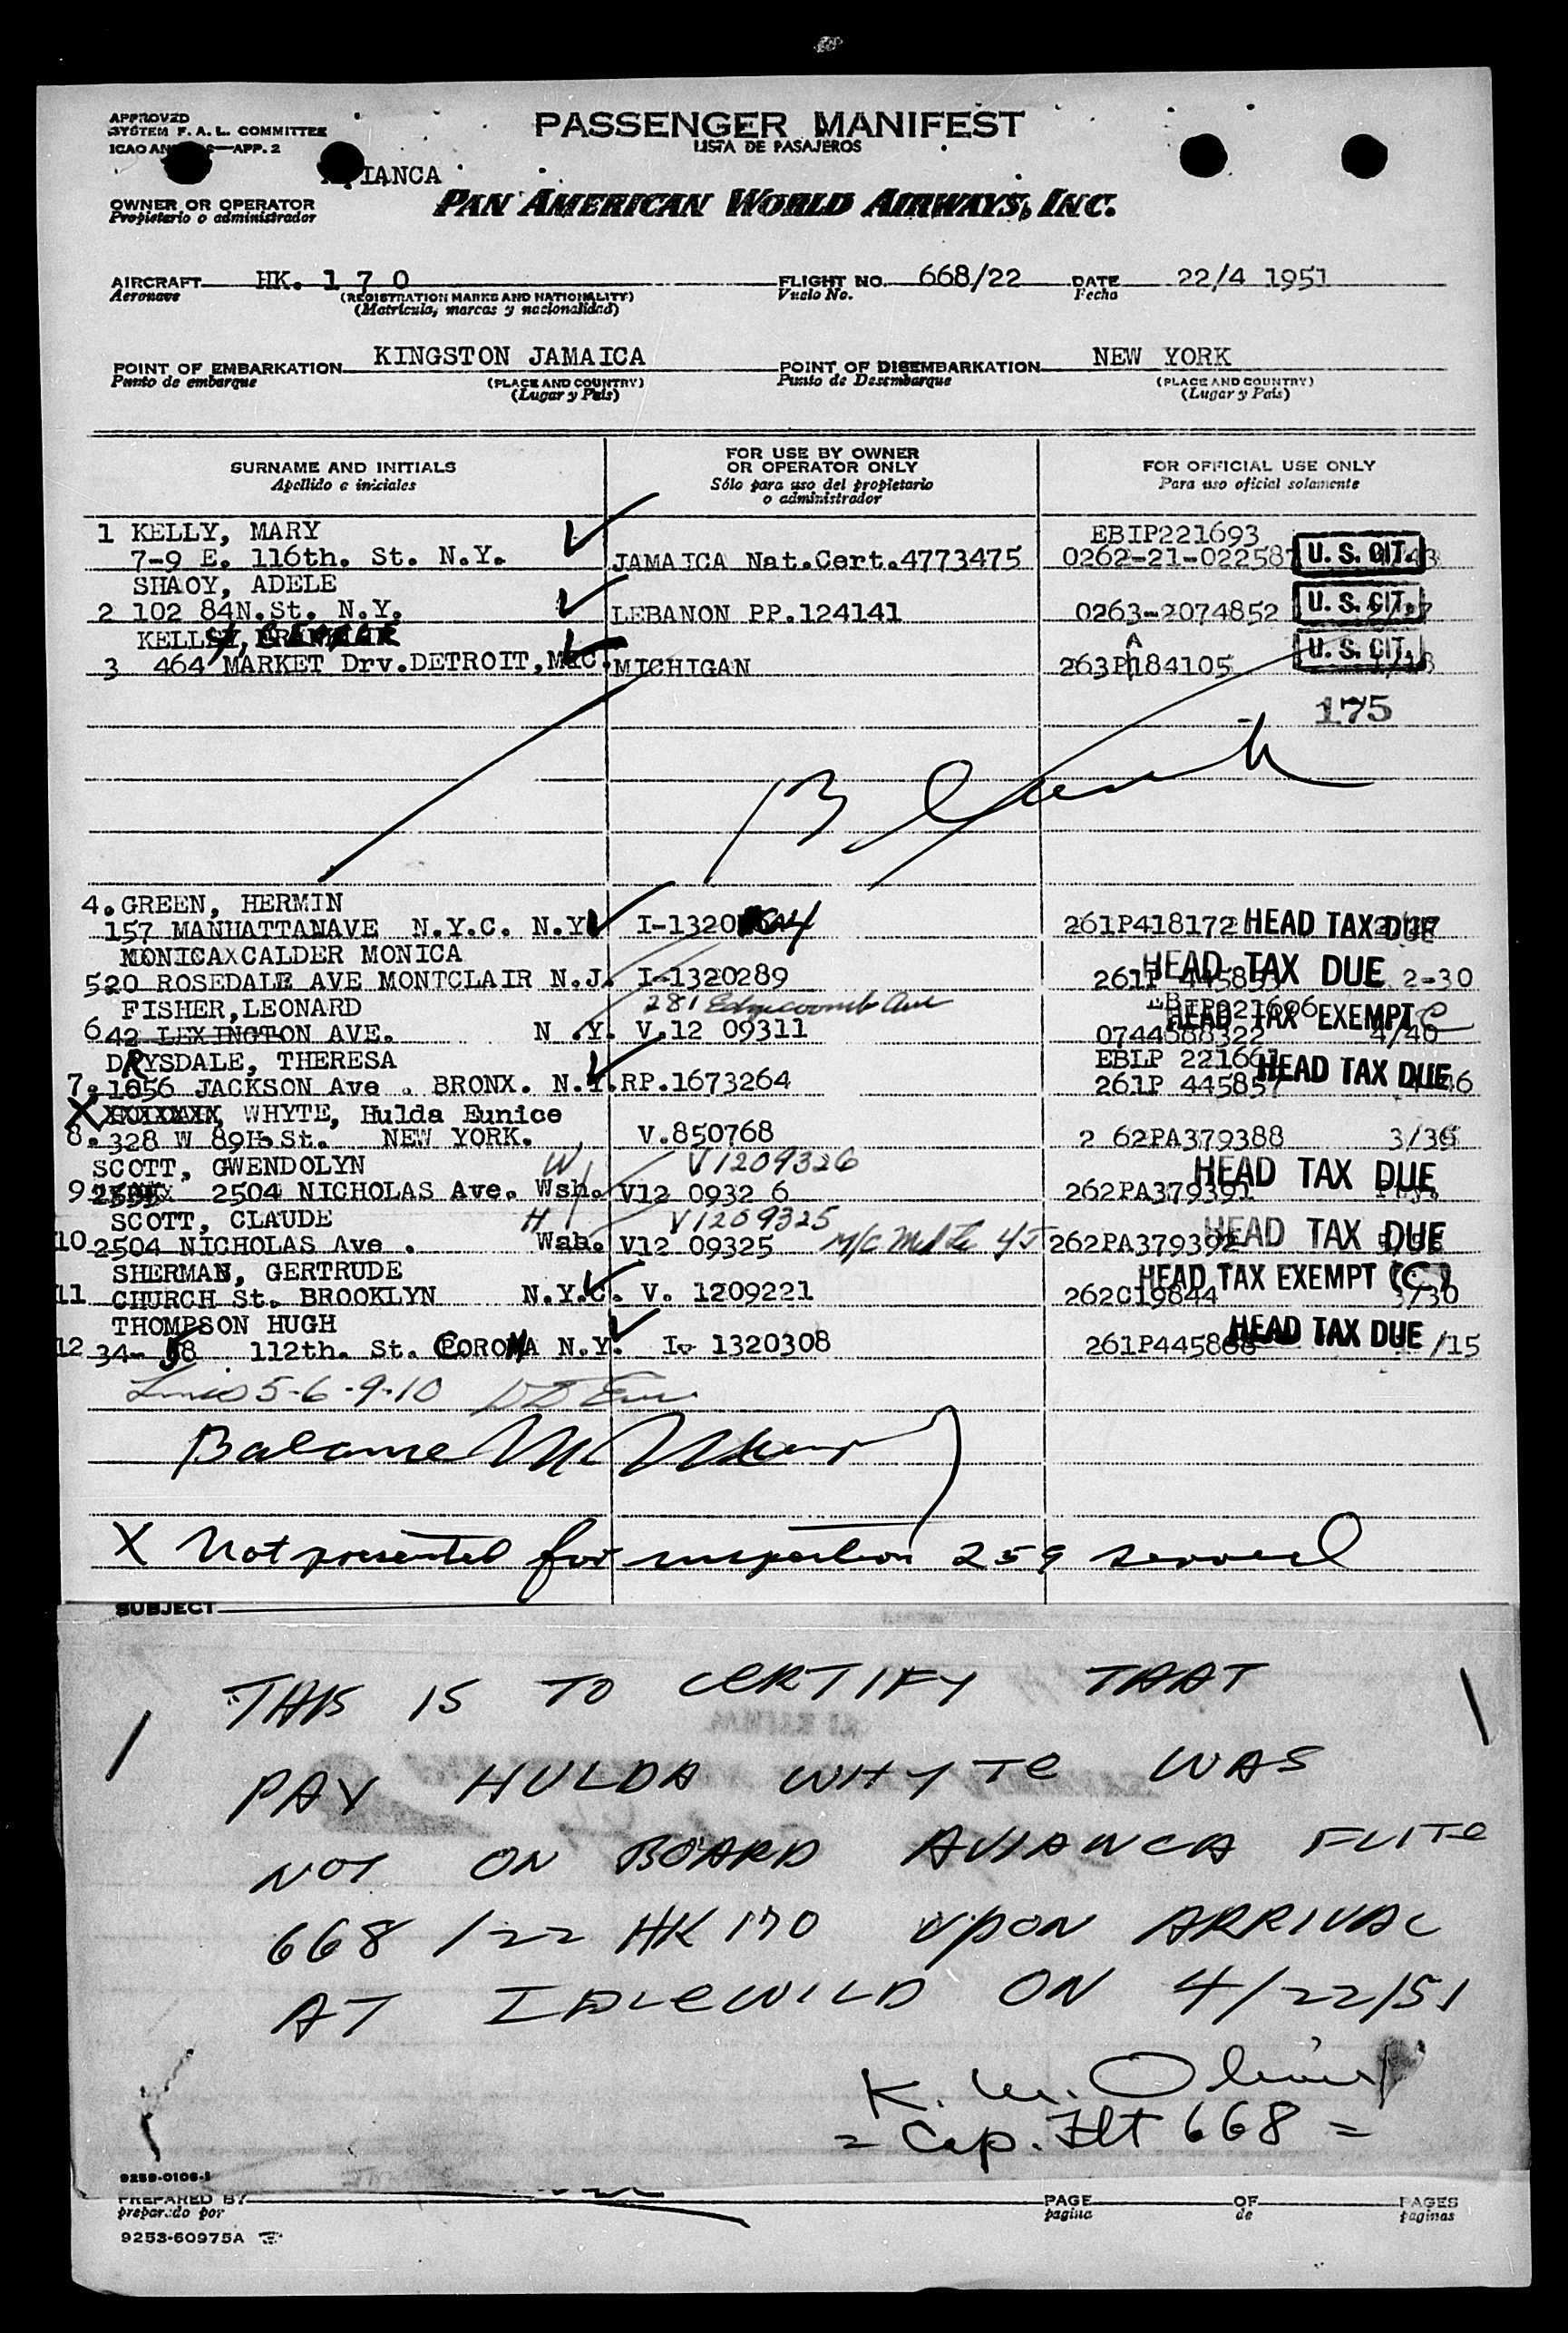 APPROVED
SYSTEM F. A. L. COMMITTEE
APP. 2
PASSENGER MANIFEST
LISTA DE PASAJEROS
IANCA
OWNER OR OPERATOR
Propietario o administrador
PAN AMERICAN WORLD AIRWAYS, INC.
AIRCRAFT HK. 1 7 0 FLIGHT NO. 668/22 DATE 22/4 1951
Aeronave (REGISTRATION MARKS AND NATIONALITY) Vuelo No. Fecha
(Matrícula, marcas y nacionalidad)
POINT OF EMBARKATION KINGSTON JAMAICA POINT OF DISEMBARKATION NEW YORK
Punto de embarque (PLACE AND COUNTRY) Punto de Desembarque (PLACE AND COUNTRY)
(Lugar y País) (Lugar y País)
SURNAME AND INITIALS
Apellido e iniciales
FOR USE BY OWNER
OR OPERATOR ONLY
Sólo para uso del propietario
o administrador
FOR OFFICIAL USE ONLY
Para uso oficial solamente
1 KELLY, MARY EBIP221693
7-9 E. 116th. St. N.Y. JAMAICA Nat.Cert.4773475 0262-21-022587 U. S. CIT.
SHAOY, ADELE
2 102 84N.St. N.Y. LEBANON PP.124141 0263-2074852 U. S. CIT.
3 464 MARKET Drv.DETROIT, MIC. MICHIGAN 263P 184105 U. S. CIT.
175
4. GREEN, HERMIN
157 MANHATTANAVE N.Y.C. N.Y. I-1320 261P418172 HEAD TAX DUE
CALDER MONICA
520 ROSEDALE AVE MONTCLAIR N.J. I-1320289 261P HEAD TAX DUE 2-30
FISHER,LEONARD 281 Edgecoomb Ave
6 42 LEXINGTON AVE. N .Y. V.12 09311 HEAD TAX EXEMPT C 4/40
DRYSDALE, THERESA EBLP 221661
7. 1056 JACKSON Ave . BRONX. N.Y. RP.1673264 261P 445857 HEAD TAX DUE
X WHYTE, Hulda Eunice
8. 328 W 89th St. NEW YORK. V.850768 2 62PA379388
SCOTT, GWENDOLYN W V1209326
9 2504 NICHOLAS Ave. Wsh. V12 0932 6 262PA379391 HEAD TAX DUE
SCOTT, CLAUDE H V1209325
10 2504 NICHOLAS Ave . Wsh. V12 09325 262PA379392 HEAD TAX DUE
SHERMAN, GERTRUDE
11 CHURCH St. BROOKLYN N.Y.C. V. 1209221 262C19844 HEAD TAX EXEMPT (C) 3/30
THOMPSON HUGH
12 34- 58 112th. St. CORONA N.Y. I- 1320308 261P445868 HEAD TAX DUE /15
Lines 5-6-9-10
Balance
X Not presented for inspection 259 served
SUBJECT
THIS IS TO CERTIFY THAT
PAX HULDA WHYTE WAS
NOT ON BOARD AVIANCA FLITE
668 /22 HK 170 UPON ARRIVAL
AT IDLEWILD ON 4/22/51
K. W. Oliver
= Cap. Flt 668 =
9259-0106-1
PREPARED BY PAGE OF PAGES
preparado por pagina de paginas
9253-60975A